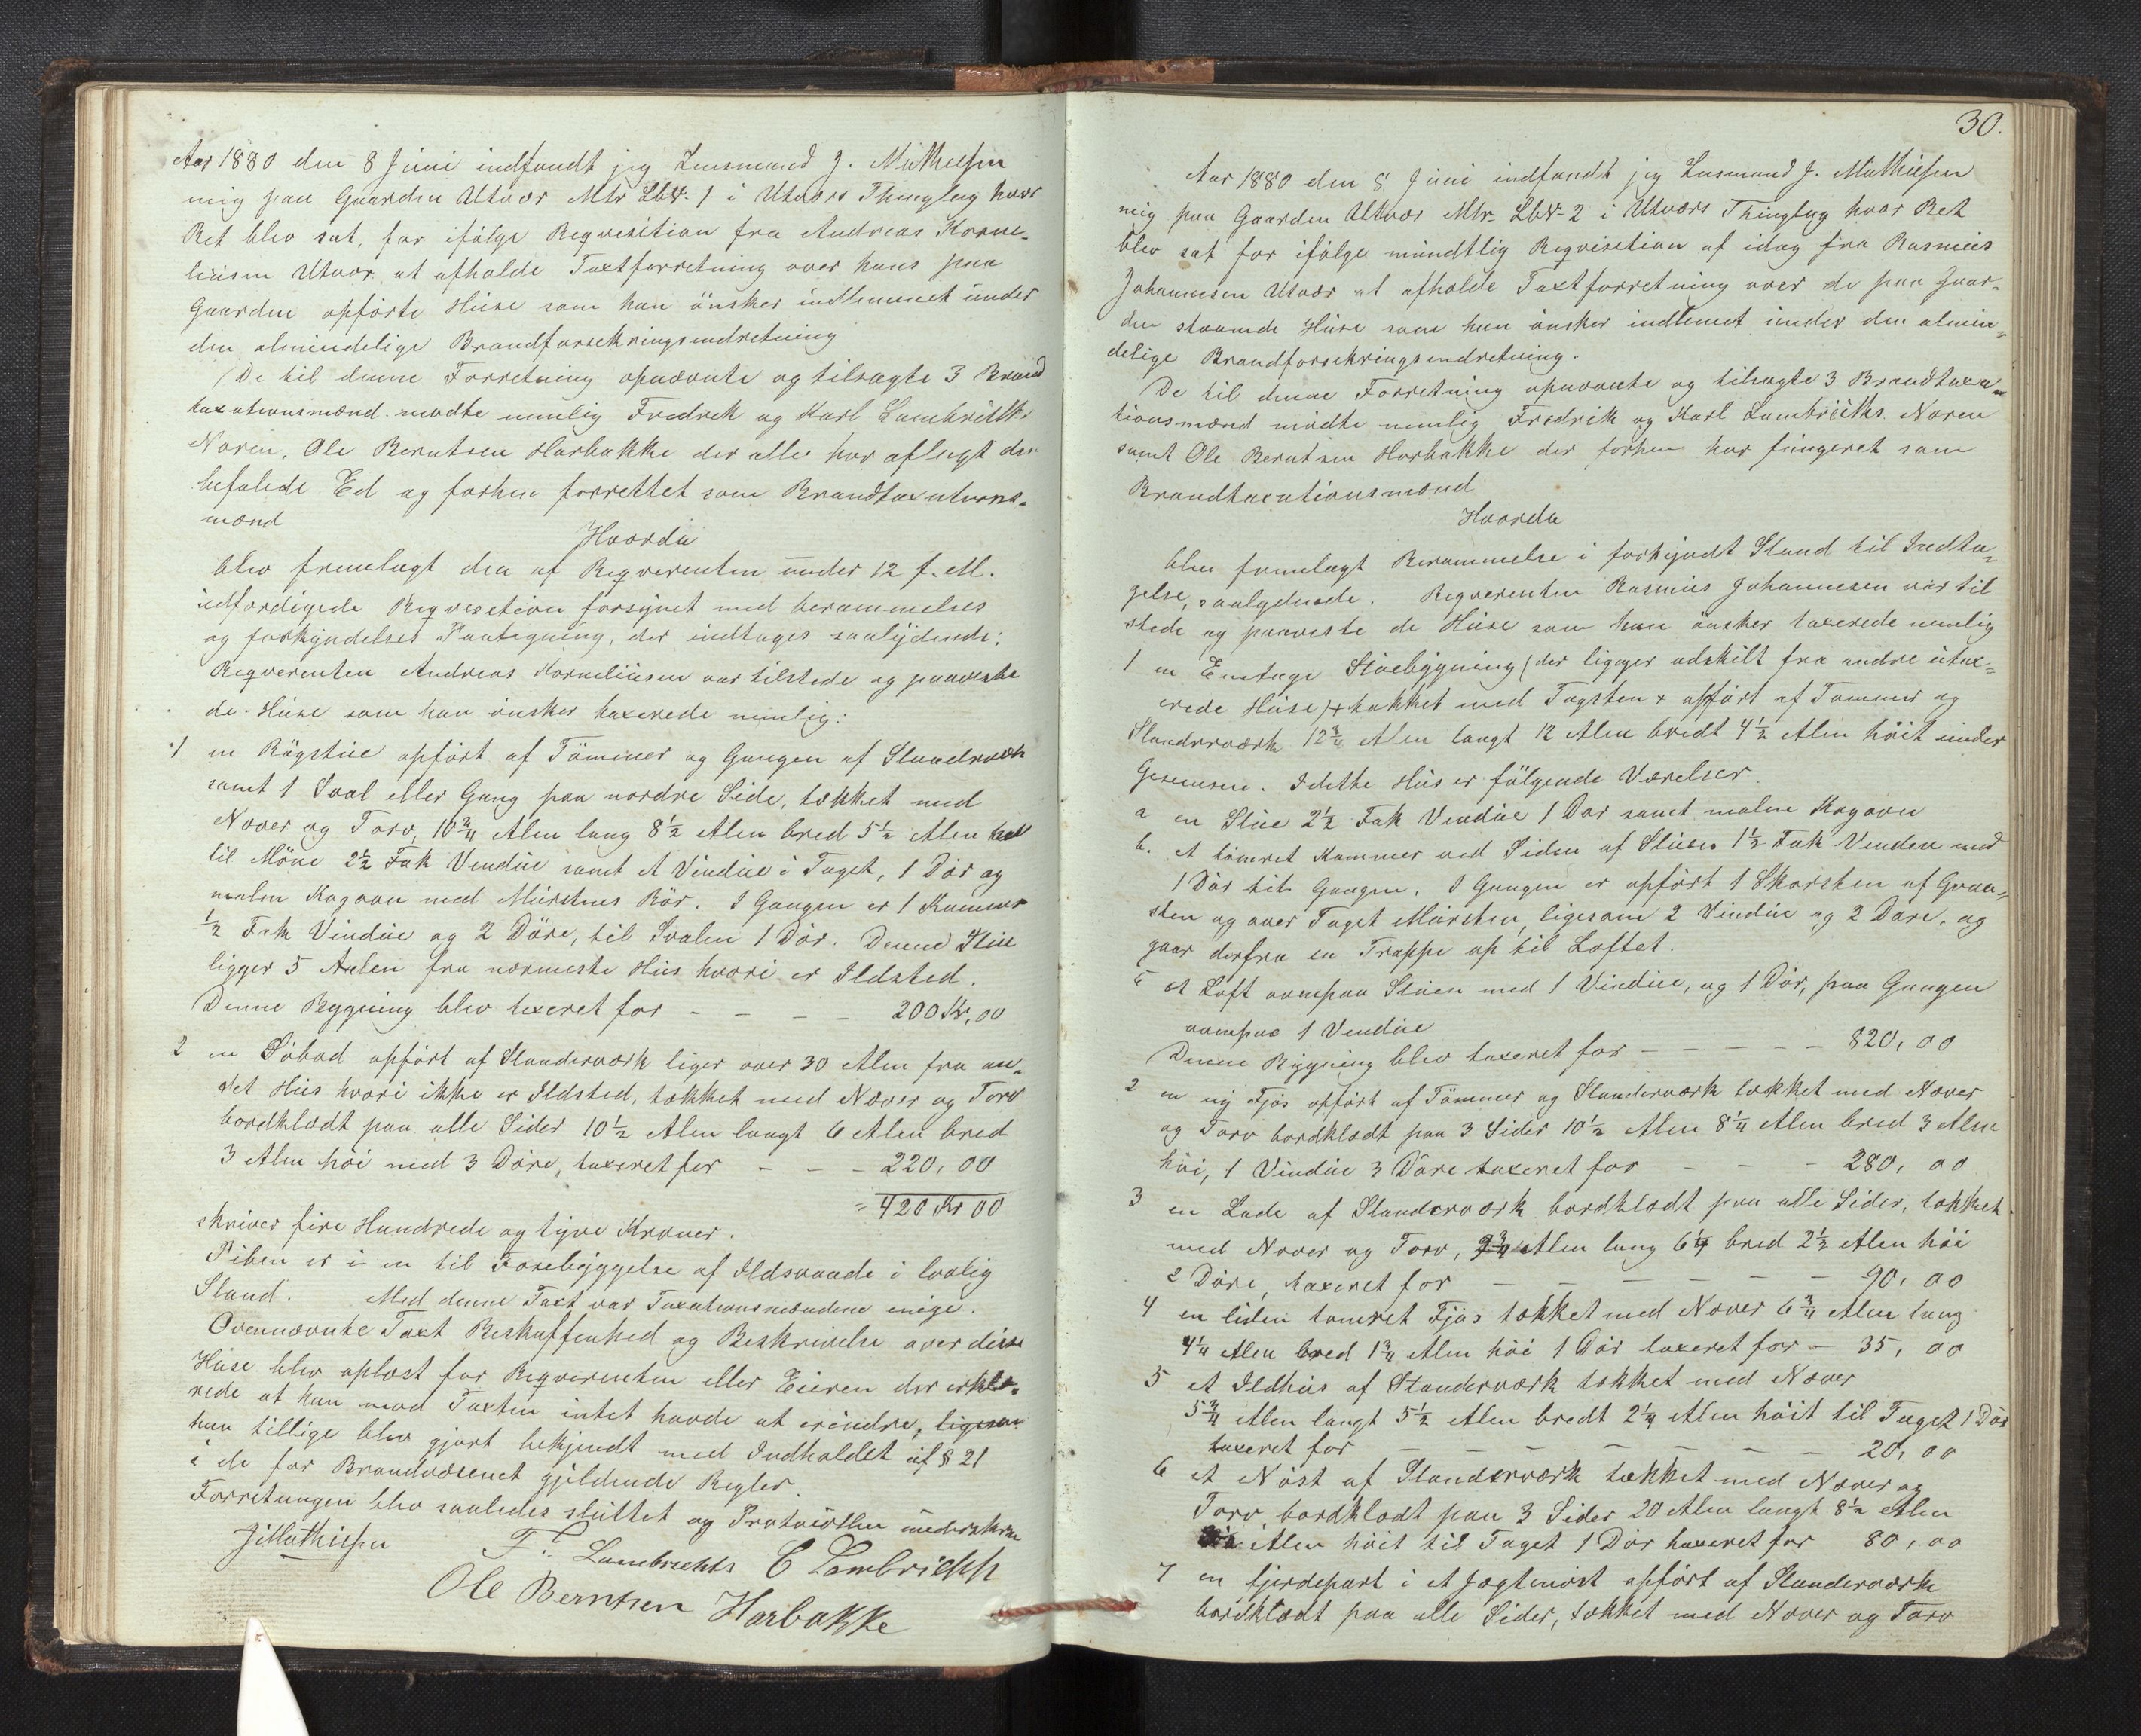 Aar 1880 den 8 Juni indfandt jeg Lensmand J. Mathiesen
mig paa Gaarden Utvær Mtr Lb№ 1 i Utværs Thinglag hvor
Ret blev sat, for ifølge Reqvisition fra Andreas Korne-
liusen Utvær at afholde Taxtforretning over hans paa
Gaarden opførte Huse som han ønsker indlemmet under
den almindelige Brandforsekringsindretning
De til denne Forretning opnævnte og tilsagte 3 Brand
taxationsmænd mødte nemlig Fredrek og Karl Lambrikts
Noren, Ole Berntsen Harbakke der alle har aflagt den
befalede Ed og forhen forrettet som Brandtaxations-
mænd
Hvorda
blev fremlagt den af Reqverenten under 12 f. M.
udfærdigede Reqvisition forsynet med berammelses
og forkyndelses Paategning, der indtages saalydende:
Reqverenten Andreas Korneliusen var tilstede og paaveste
de Huse som han ønsker taxerede nemlig:
1 en Røgstue opført af Tømmer og Gangen af Standerværk
samt 1 Sval eller Gang paa nordre Side, tækket med
Næver og Torv, 10 3/4 Alen lang 8 1/2 Alen bred 5 1/2 Alen høi
til Møne 2 1/2 Fak Vendue samt et Vindue i Taget, 1 Dør og
malm Kogovn med Murstens Rør. I Gangen er 1 Kammer
1/2 Fak Vindue og 2 Døre, til Svalen 1 Dør. Denne Stue
ligger 5 Aalen fra nærmeste Hus hvori er Ildsted.
Denne Bygning blev taxeret for - - - - 200 Kr, 00
2 en Søbod opført af Standerværk liger over 30 Alen fra an-
det Hus hvori ikke er Ildsted, tækket med Næver og Torv
bordklædt paa alle Sider 10 1/2 Alen langt 6 Alen bred
3 Alen høi med 3 Døre, taxeret for - - - 220, 00
= 420 Kr 00
skriver fire Hundrede og tyve Kroner.
Piben er i en til Forebyggelse af Ildsvaade i lovlig
Stand. Med denne Taxt var Taxationsmændene enige.
Ovennævnte Taxt Beskaffenhed og Beskrivelse over disse
Huse blev oplæst for Reqverenten eller Eieren der erklæ-
rede at han mod Taxten intet havde at erindre, ligesom
han tillige blev gjort bekjendt med Indholdet af § 21
i de for Brandvæsenet gjeldende Regler.
Forretningen blev saaledes sluttet og Protocollen underskreven
J. Mathiesen F. Lambrechts C Lambrichts
Ole Berntsen Harbakke
30.
Aar 1880 den 8 Juni indfandt jeg Lensmand J. Mathiesen
mig paa Gaarden Utvær Mtr. Lb№ 2 i Utværs Thinglag hvor Ret
blev sat for ifølge mundtlig Reqvisition af idag fra Rasmus
Johannesen Utvær at afholde Taxtforretning over de paa Gaar-
den staaende Huse som han ønsker indlemet under den almin-
delige Brandforsekringsindretning.
De til denne Forretning opnævnte og tilsagte 3 Brandtaxa-
tionsmænd mødte nemlig Fredrik og Karl Lambrikts Noren
samt Ole Berntsen Harbakke der forhen har fungeret som
Brandtaxationsmænd
Hvorda
blev fremlagt Berammelse i forkyndt Stand til Indta-
gelse, saalydende. Reqverenten Rasmus Johannesen var til
stede og paaveste de Huse som han ønsker taxerede nemlig
1 en Eneetage Stuebygning (der ligger adskilt fra andre utax-
erede Huse) tækket med Tagsten opført af Tømmer og
Standerværk 12 3/4 Alen langt 12 Alen bredt 4 1/2 Alen høit under
Gesemsen. I dette Hus er følgende Værelser
a en Stue 2 1/2 Fak Vendue 1 Dør samt malm Kogovn
b. et tømret Kammer ved Siden af Stuen 1 1/2 Fak Vendue med
1 Dør til Gangen. I Gangen er opført 1 Skorsten af Graa-
sten og over Taget Mursten, ligesom 2 Vindue og 2 Døre, og
gaar derfra en Trappe op til Loftet.
c et Loft ovenpaa Stuen med 1 Vindue, og 1 Dør, paa Gangen
ovenpaa 1 Vendue
Denne Bygning blev taxeret for - - - - - 820, 00
2 en ny Fjøs opført af Tømmer og Standerværk tækket med Næver
og Torv bordklædt paa 3 Sider 10 1/2 Alen 8 1/4 Alen bred 3 Alen
høi, 1 Vindue 3 Døre taxeret for - - - 280, 00
3 en Lade af Standerværk bordklædt paa alle Sider, tækket
med Næver og Torv, 9 3/4 Alen lang 6 1/4 bred 2 1/2 Alen høi
2 Døre, taxeret for - - - - - - 90, 00
4 en liden tømret Fjøs tækket med Næver 6 3/4 Alen lang
4 1/4 Alen bred 1 3/4 Alen høi 1 Dør taxeret for - 35, 00
5 et Ildhus af Standerværk tækket med Næver
5 3/4 Alen langt 5 1/2 Alen bredt 2 1/4 Alen høit til Taget 1 Dør
taxeret for - - - - - - - 20, 00
6 et Nøst af Standerværk tækket med Næver og
Torv, bordklædt paa 3 Sider 20 Alen langt 8 1/2 Alen
Alen høit til Taget 1 Dør taxeret for 80, 00
7 en fjerdepart i et Jægtenøst opført af Standerværk
bordklædt paa alle Sider, tækket med Næver og Torv